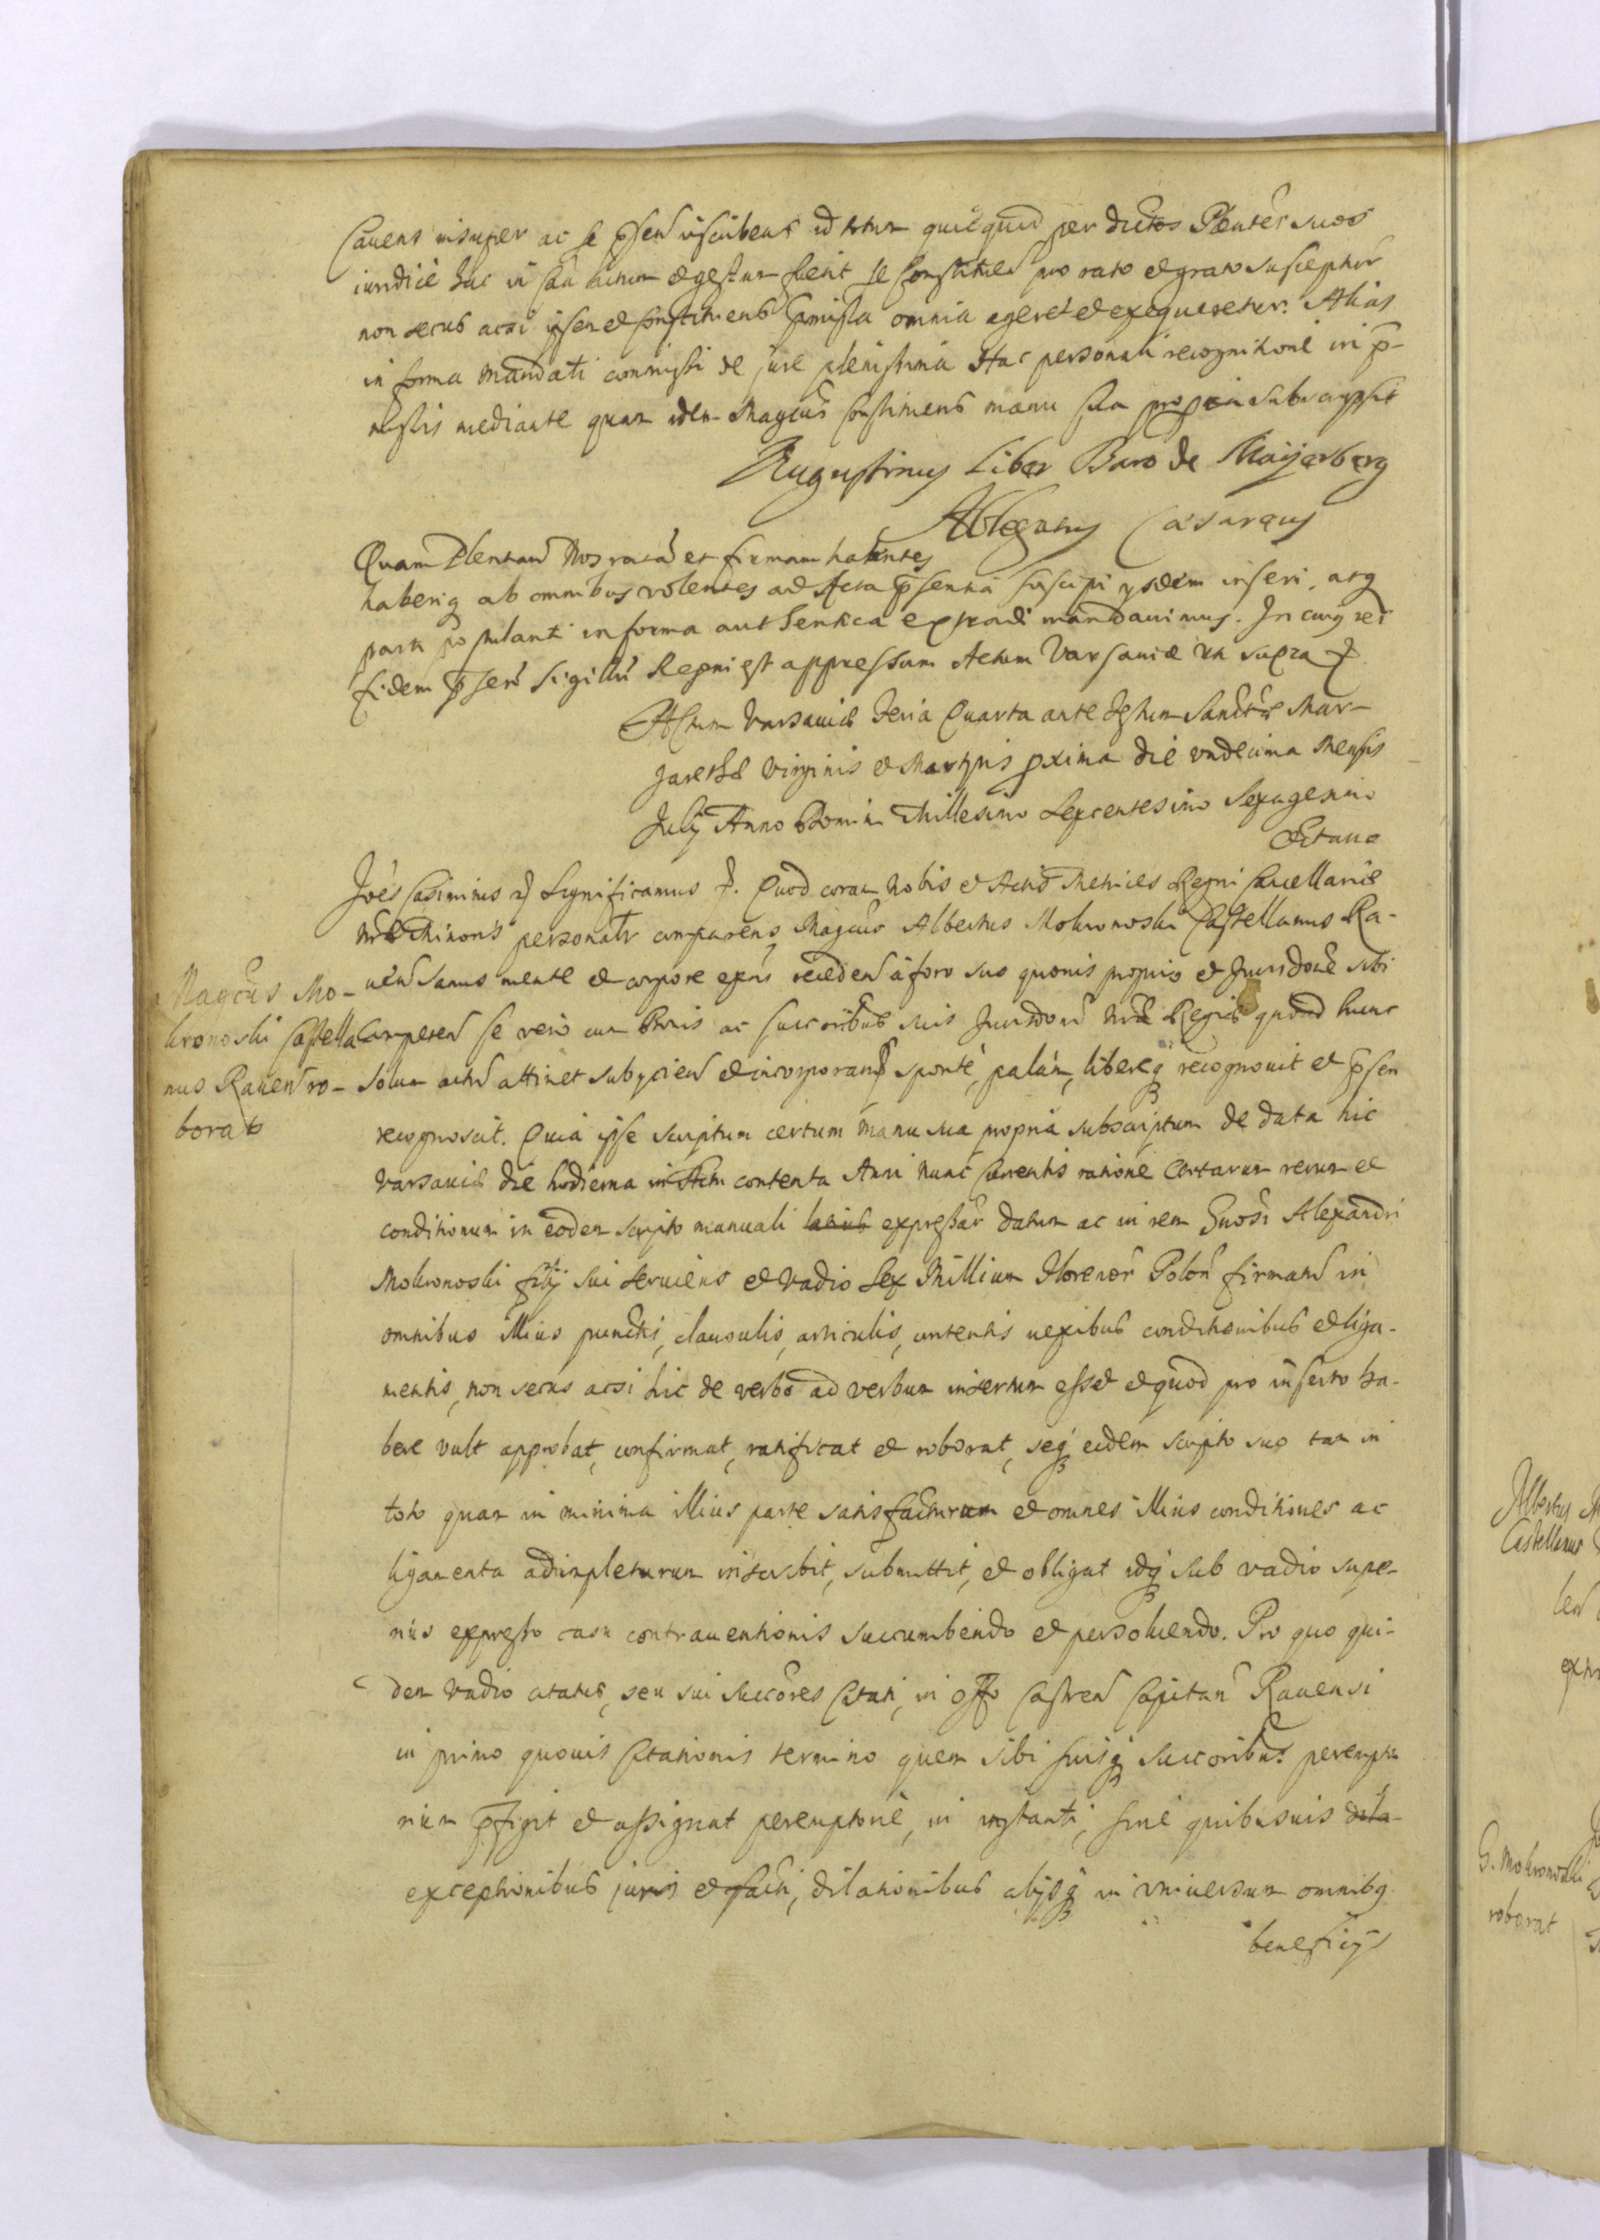 Cavens insuper ac se p̄sen inscribens id totum quicquid per dictos Plentes̃ suos
iuridicè hac in cãa actum et gestum fuerit se Constituen̄ pro rato et grato suscepturũ
non secus acsi ipsemet Constituens p̄missa omnia ageret et exequeretur. Alias
in forma mandati commissi de jure plenissima Hac personali recognitione in p̄-
missis mediante quam idem Magcũs Constituens manu sua propria subscripsit
Augustinus Liber Baro de Maÿerberg
Ablegatus Cæsareus
Quam Plentiam Nos ratã et firmam habentes
haberiq ab omnibus volentes ad Acta p̄sentia suscipi ijsdem inseri, atq
parti postulanti in forma authentica extradi mandavimus. In cuius rei
fidem p̄sen̄ Sigillũ Regni est appressum Actum Varsaviæ ut supra
Actum Varsaviæ Feria Quarta ante Festum Sanctæ Mar-
garethæ Virginis et Martyris p̱xima die undecima Mensis
Julij Anno Domini Millesimo Sexcentesimo Sexagesimo
Octavo
Joẽs Casimirus Significamus. Quod coram Nobis et Actis Metrices Regni Cancellariæ
Nrã Minoris personaltr comparens Magcũs Albertus Mokronoski Castellanus Ra-
ven̄ sanus mente et corpore exñs receden̄ à foro suo quovis proprio et Jurisdõne sibi
competen̄ se vero cum Bonis ac succõribus suis Jurisdõni Nrã Regiæ quoad hunc
solum actum attinet subyciens et incorporans sponte, palam, libereq recognovit et p̄sen
recognoscit. Quia ipse scriptum certum manu sua propria subscriptum de data hic
Varsaviæ die hodierna in Actu contenta Anni nunc currentis ratione certarum rerum et
conditionum in eodem scripto manuali latius expressar̃ datum ac in rem Gnosi Alexandri
Mokronoski filij sui serviens et Vadio Sex Millium Florenor̃ Polon̄ firmatũ in
omnibus illius punctis, clausulis, articulis, contentis nexibus conditionibus et liga-
mentis, non secus acsi hic de verbo ad verbum insertum esset et quod pro inserto ha-
bere vult approbat, confirmat, ratificat et roborat, seq eidem scripto suo tam in
toto quam in minima illius parte satisfacturum et omnes illius conditiones ac
ligamenta adimpleturum inscribit, submittit, et obligat idq sub vadio supe-
rius expresso casu contraventionis succumbendo et persolvendo. Pro quo qui-
dem vadio citatus, seu sui succõres citati, in offo Castren̄ Capitan̄ Ravensi
in primo quovis Citationis termino quem sibi suisq succoribus perempto-
rium p̄figit et assignat peremptoriè, in instanti, sine quibusvis dila-
exceptionibus juris et facti, dilationibus alijsq in universum omnibq
beneficijs
Magcũs Mo-
kronoski Castella
nus Raven̄ ro-
borat
Castellanus
G. Mokronoski
roborat